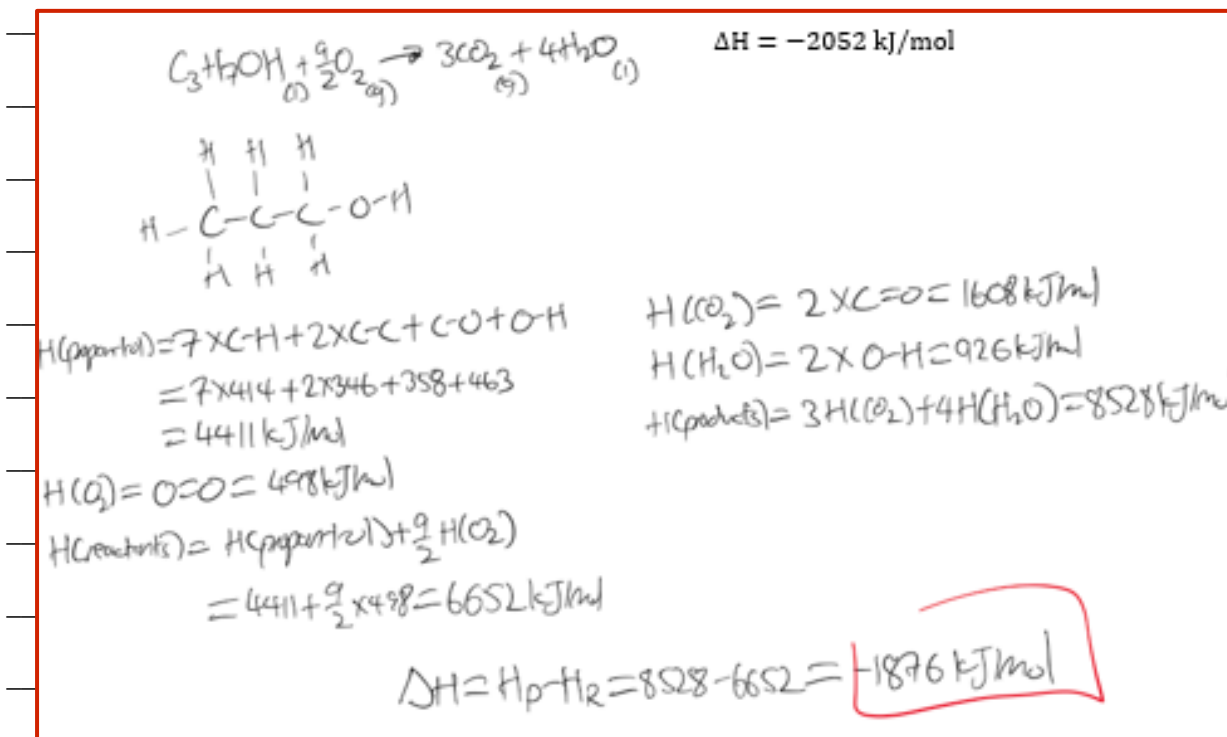 C₃H₇OH(l) + 9/2 O₂(g) → 3CO₂(g) + 4H₂O(l)
ΔH = −2052 kJ/mol
H H H
H – C – C – C – O – H
H H H
H(propanol) = 7×C-H + 2×C-C + C-O + O-H
= 7×414 + 2×346 + 358 + 463
= 4411 kJ/mol
H(O₂) = O=O = 498 kJ/mol
H(reactants) = H(propanol) + 9/2 H(O₂)
= 4411 + 9/2 × 498 = 6652 kJ/mol
H(CO₂) = 2×C=O = 1608 kJ/mol
H(H₂O) = 2×O-H = 926 kJ/mol
H(products) = 3H(CO₂) + 4H(H₂O) = 8528 kJ/mol
ΔH = Hp - HR = 8528 - 6652 = -1876 kJ/mol